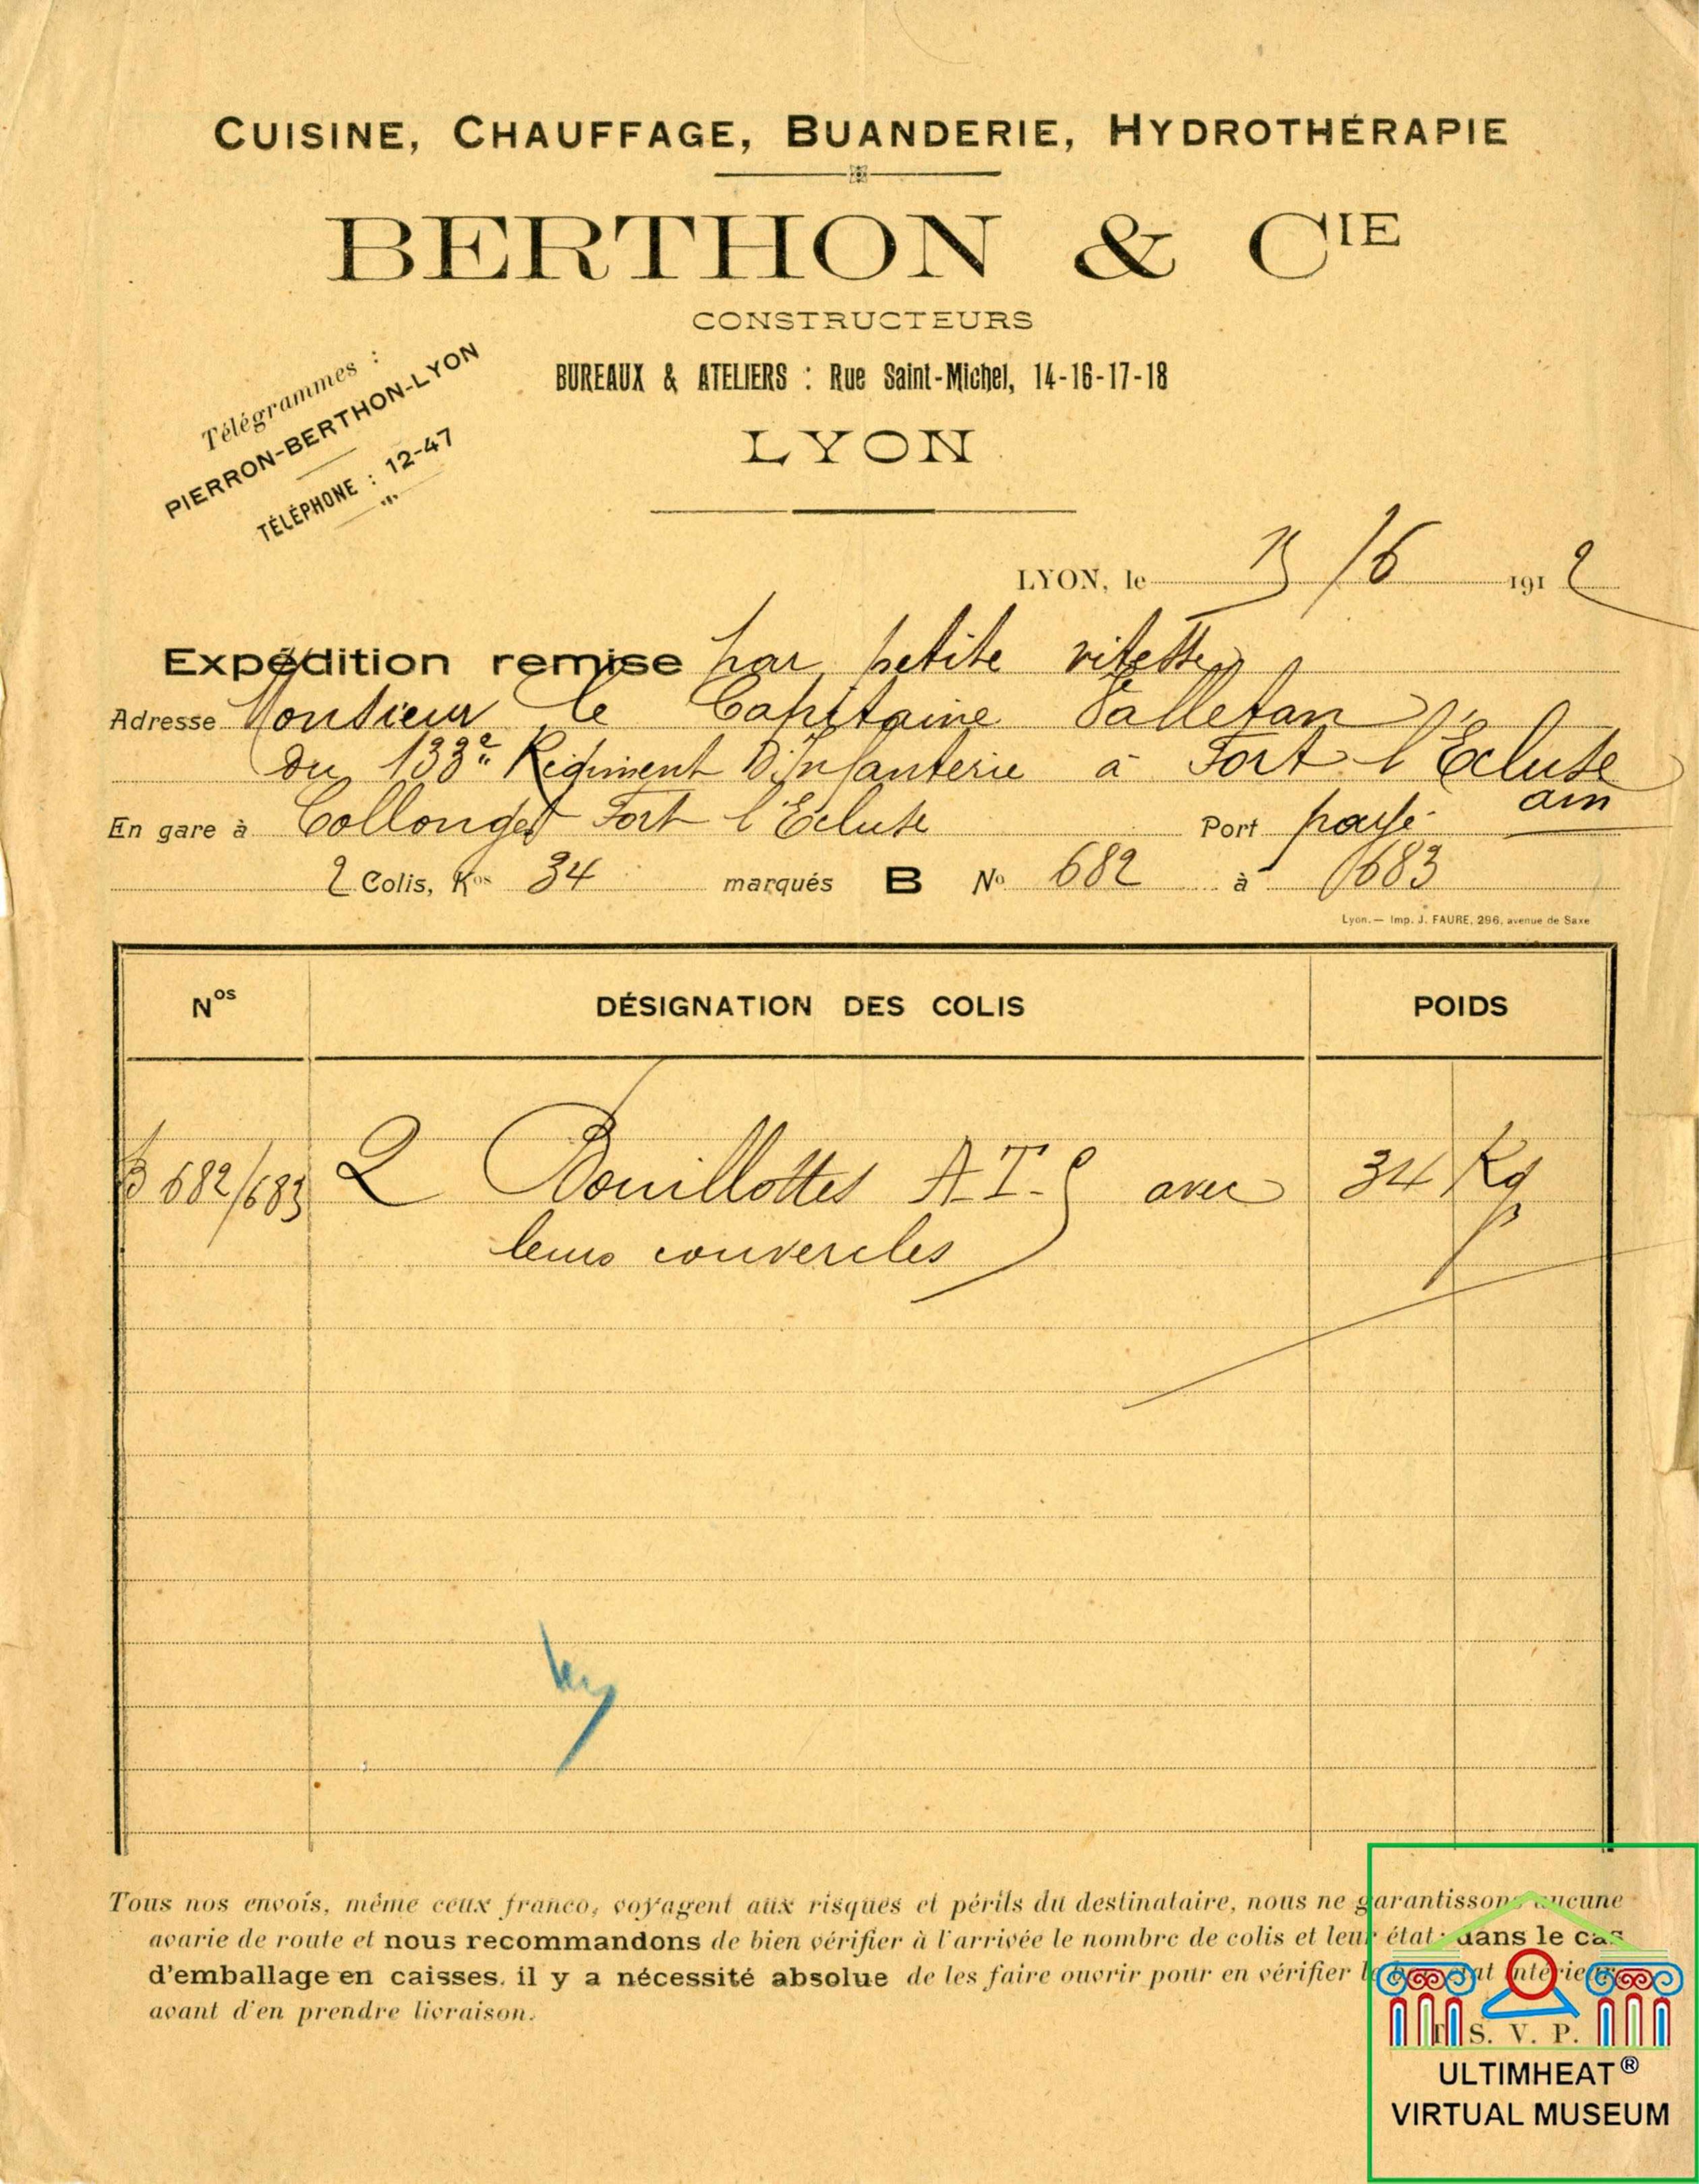 CUISINE, CHAUFFAGE, BUANDERIE, HYDROTHÉRAPIE
BERTHON & CIE
CONSTRUCTEURS
BUREAUX & ATELIERS : Rue Saint-Michel, 14-16-17-18
LYON
Télégrammes :
PIERRON-BERTHON-LYON
TÉLÉPHONE : 12-47
LYON, le /6 1912
Expédition remise par petite vitesse
Adresse Monsieur le Capitaine
du 133e Régiment D'Infanterie à Fort l'Ecluse
Ain
En gare à Collonges Fort l'Ecluse Port payé
2 Colis, Kos 34 marqués B No 682 à 683
Lyon. — Imp. J. FAURE, 296, avenue de Saxe
Nos DÉSIGNATION DES COLIS POIDS
B 682/683 2 Bouillottes A.T.S avec 34 Kg
leurs couvercles
Tous nos envois, même ceux franco, voyagent aux risques et périls du destinataire, nous ne garantissons aucune
avarie de route et nous recommandons de bien vérifier à l'arrivée le nombre de colis et leur état; dans le cas
d'emballage en caisses, il y a nécessité absolue de les faire ouvrir pour en vérifier intérieur
avant d'en prendre livraison.
S. V. P.
ULTIMHEAT®
VIRTUAL MUSEUM